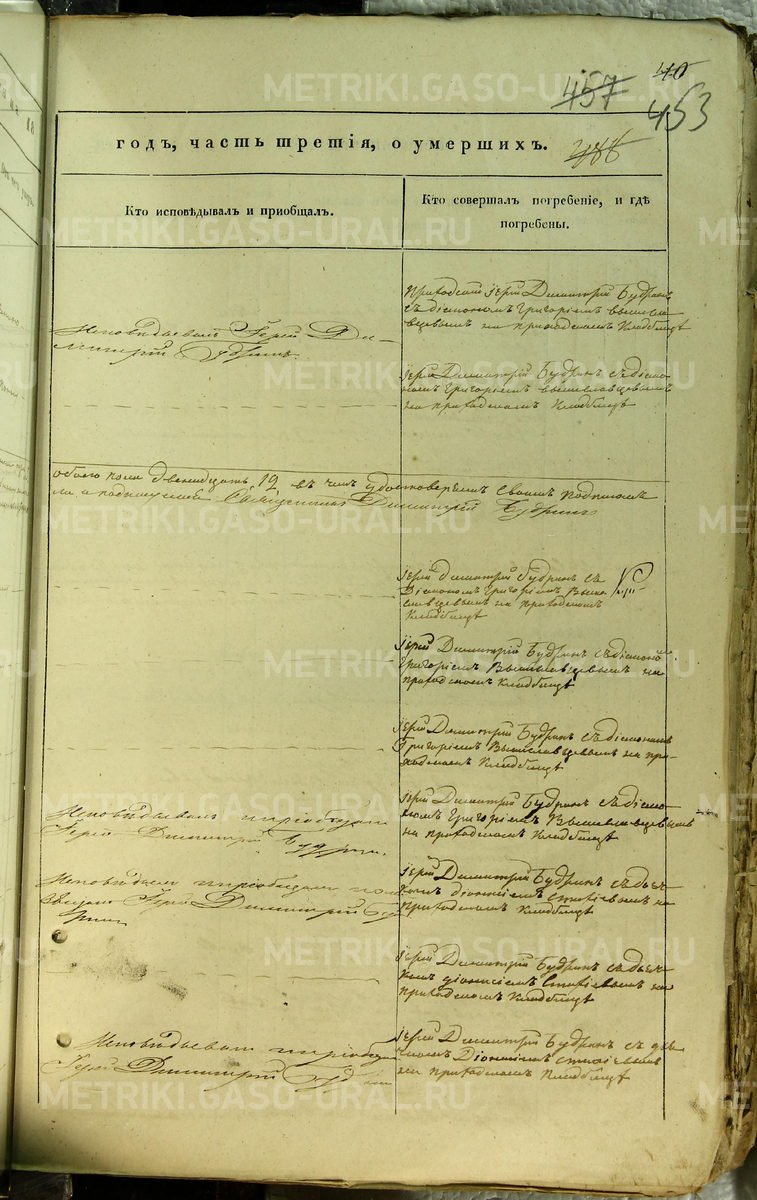 METRIKI.GASO-URAL.RU
40
457
453
годъ, часть третія, о умершихъ.
488
Кто исповѣдывалъ и приобщалъ.
Кто совершалъ погребеніе, и гдѣ
погребены.
Приходскій Іерей Димитрій Будринъ
съ діакономъ Григоріемъ Вышесла
вцевымъ на приходскомъ кладбищѣ
Исповѣдывалъ Іерей Ди-
митрій Будринъ
Іерей Димитрій Будринъ съ діако
номъ Григоріемъ Вышеславцевымъ
на приходскомъ кладбищѣ
обоего пола двенадцать 12 въ чемъ удостоверяемъ своимъ подписом
Священникъ Димитрій Будринъ
Іерей Димитрій Будринъ съ
Діакономъ Григоріемъ Выше
славцевымъ на приходскомъ
кладбищѣ
Іерей Димитрій Будринъ съ діакономъ
Григоріемъ Вышеславцевымъ на
приходскомъ кладбищѣ
Іерей Димитрій Будринъ съ діакономъ
Григоріемъ Вышеславцевымъ на при-
ходскомъ кладбищѣ
Исповѣдывалъ и приобщалъ
Іерей Димитрій Будринъ
Іерей Димитрій Будринъ съ діако
номъ Григоріемъ Вышеславцевымъ
на приходскомъ кладбищѣ
Исповѣдывалъ и приобщалъ
Іерей Димитрій Бу
дринъ
Іерей Димитрій Будринъ съ дьяч
комъ Діонисіемъ на
приходскомъ кладбищѣ
Іерей Димитрій Будринъ съ дьяч
комъ Діонисіемъ на
приходскомъ кладбищѣ
Исповѣдывалъ и приобщалъ
Іерей Димитрій Будринъ
Іерей Димитрій Будринъ съ дья
чкомъ Діонисіемъ
на приходскомъ кладбищѣ